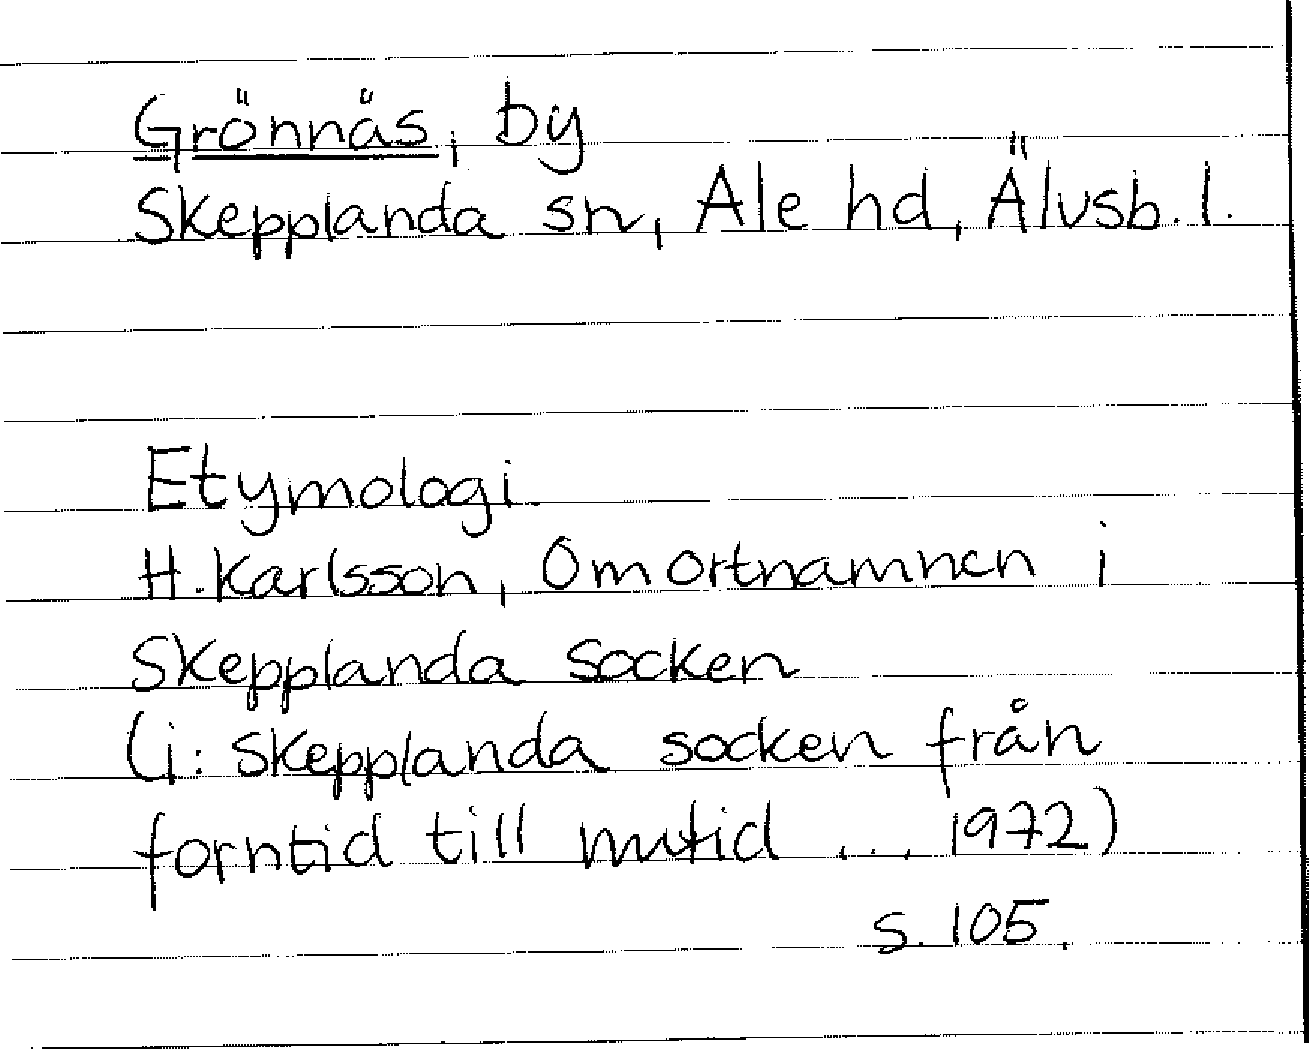 Grönnäs, by
Skepplanda sn, Ale hd, Älvsb. l.
Etymologi
H. Karlsson, Om ortnamnen i
Skepplanda socken
(i: Skepplanda socken från
forntid till nutid ... 1972)
s. 105.